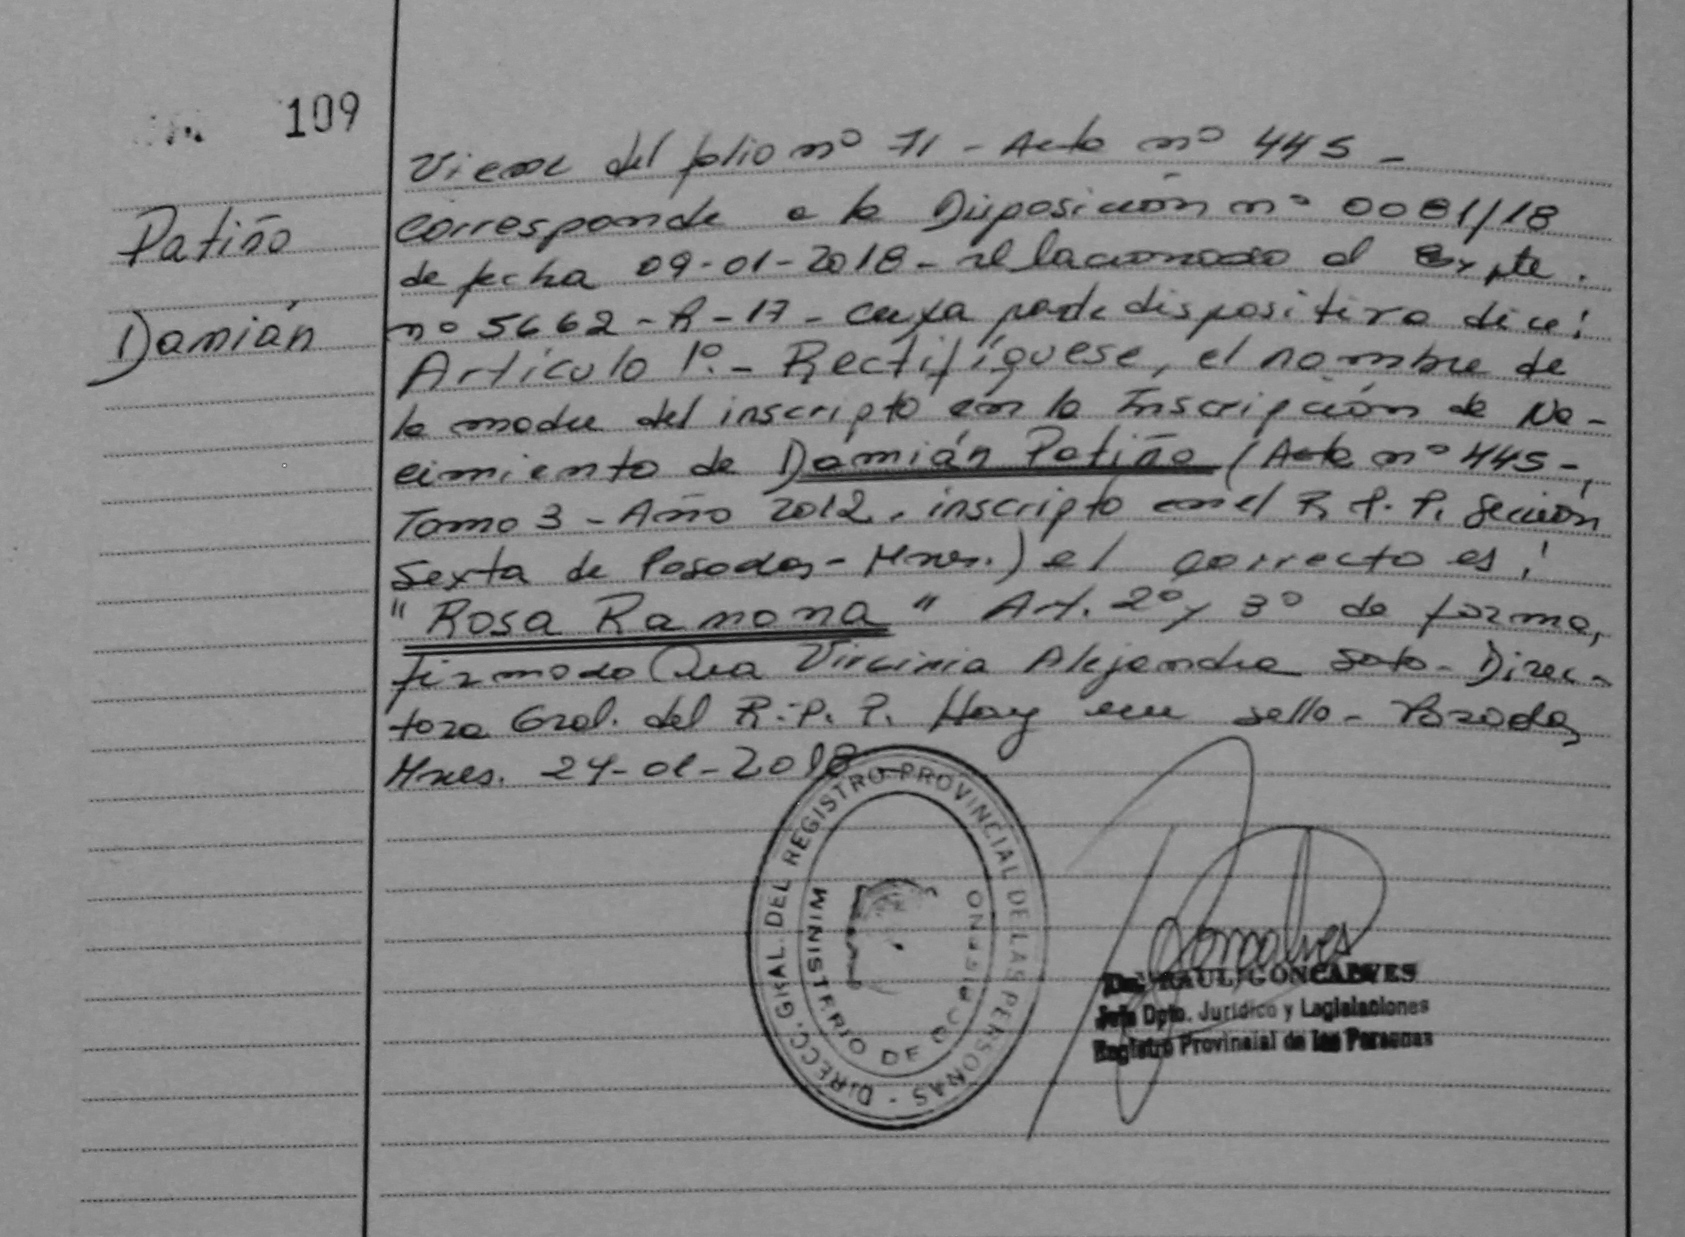 109
Patiño
Damián
Viene del folio nº 71 - Acta nº 445 -
corresponde a la Disposición nº 0081/18
de fecha 09-01-2018 - relacionado al Expte.
nº 5662 - R - 17 - cuya parte dispositiva dice:
Artículo 1º.- Rectifíquese, el nombre de
la madre del inscripto en la Inscripción de Na-
cimiento de Damián Patiño (Acta nº 445 -
Tomo 3 - Año 2012, inscripto en el R. P. P. Sección
Sexta de Posadas - Mnes.) el correcto es:
"Rosa Ramona" Art. 2º y 3º de forma,
firmado Virginia Alejandra Soto - Direc-
tora Gral. del R. P. P. Hay un sello - Posadas
Mnes. 24-01-2018
DIRECC. GRAL. DEL REGISTRO PROVINCIAL DE LAS PERSONAS -
MINISTERIO DE GOBIERNO
Goncalves
Dr. RAUL GONCALVES
Jefe Dpto. Jurídico y Legislaciones
Registro Provincial de las Personas